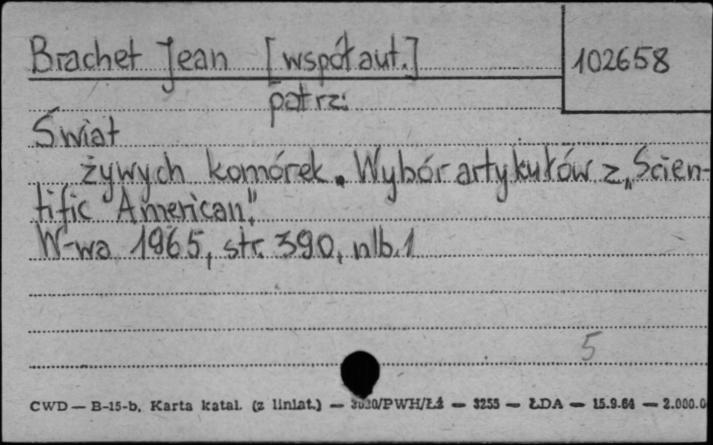 Brachet Jean [współaut.] 102658
patrz:
Świat
żywych komórek. Wybór artykułów z „Scien-
tific American".
W-wa 1965, str. 390, nlb. 1
5
CWD — B-15-b. Karta katal. (z liniat.) — 3030/PWH/Łź — 3255 — ŁDA — 15.9.64 — 2.000.0